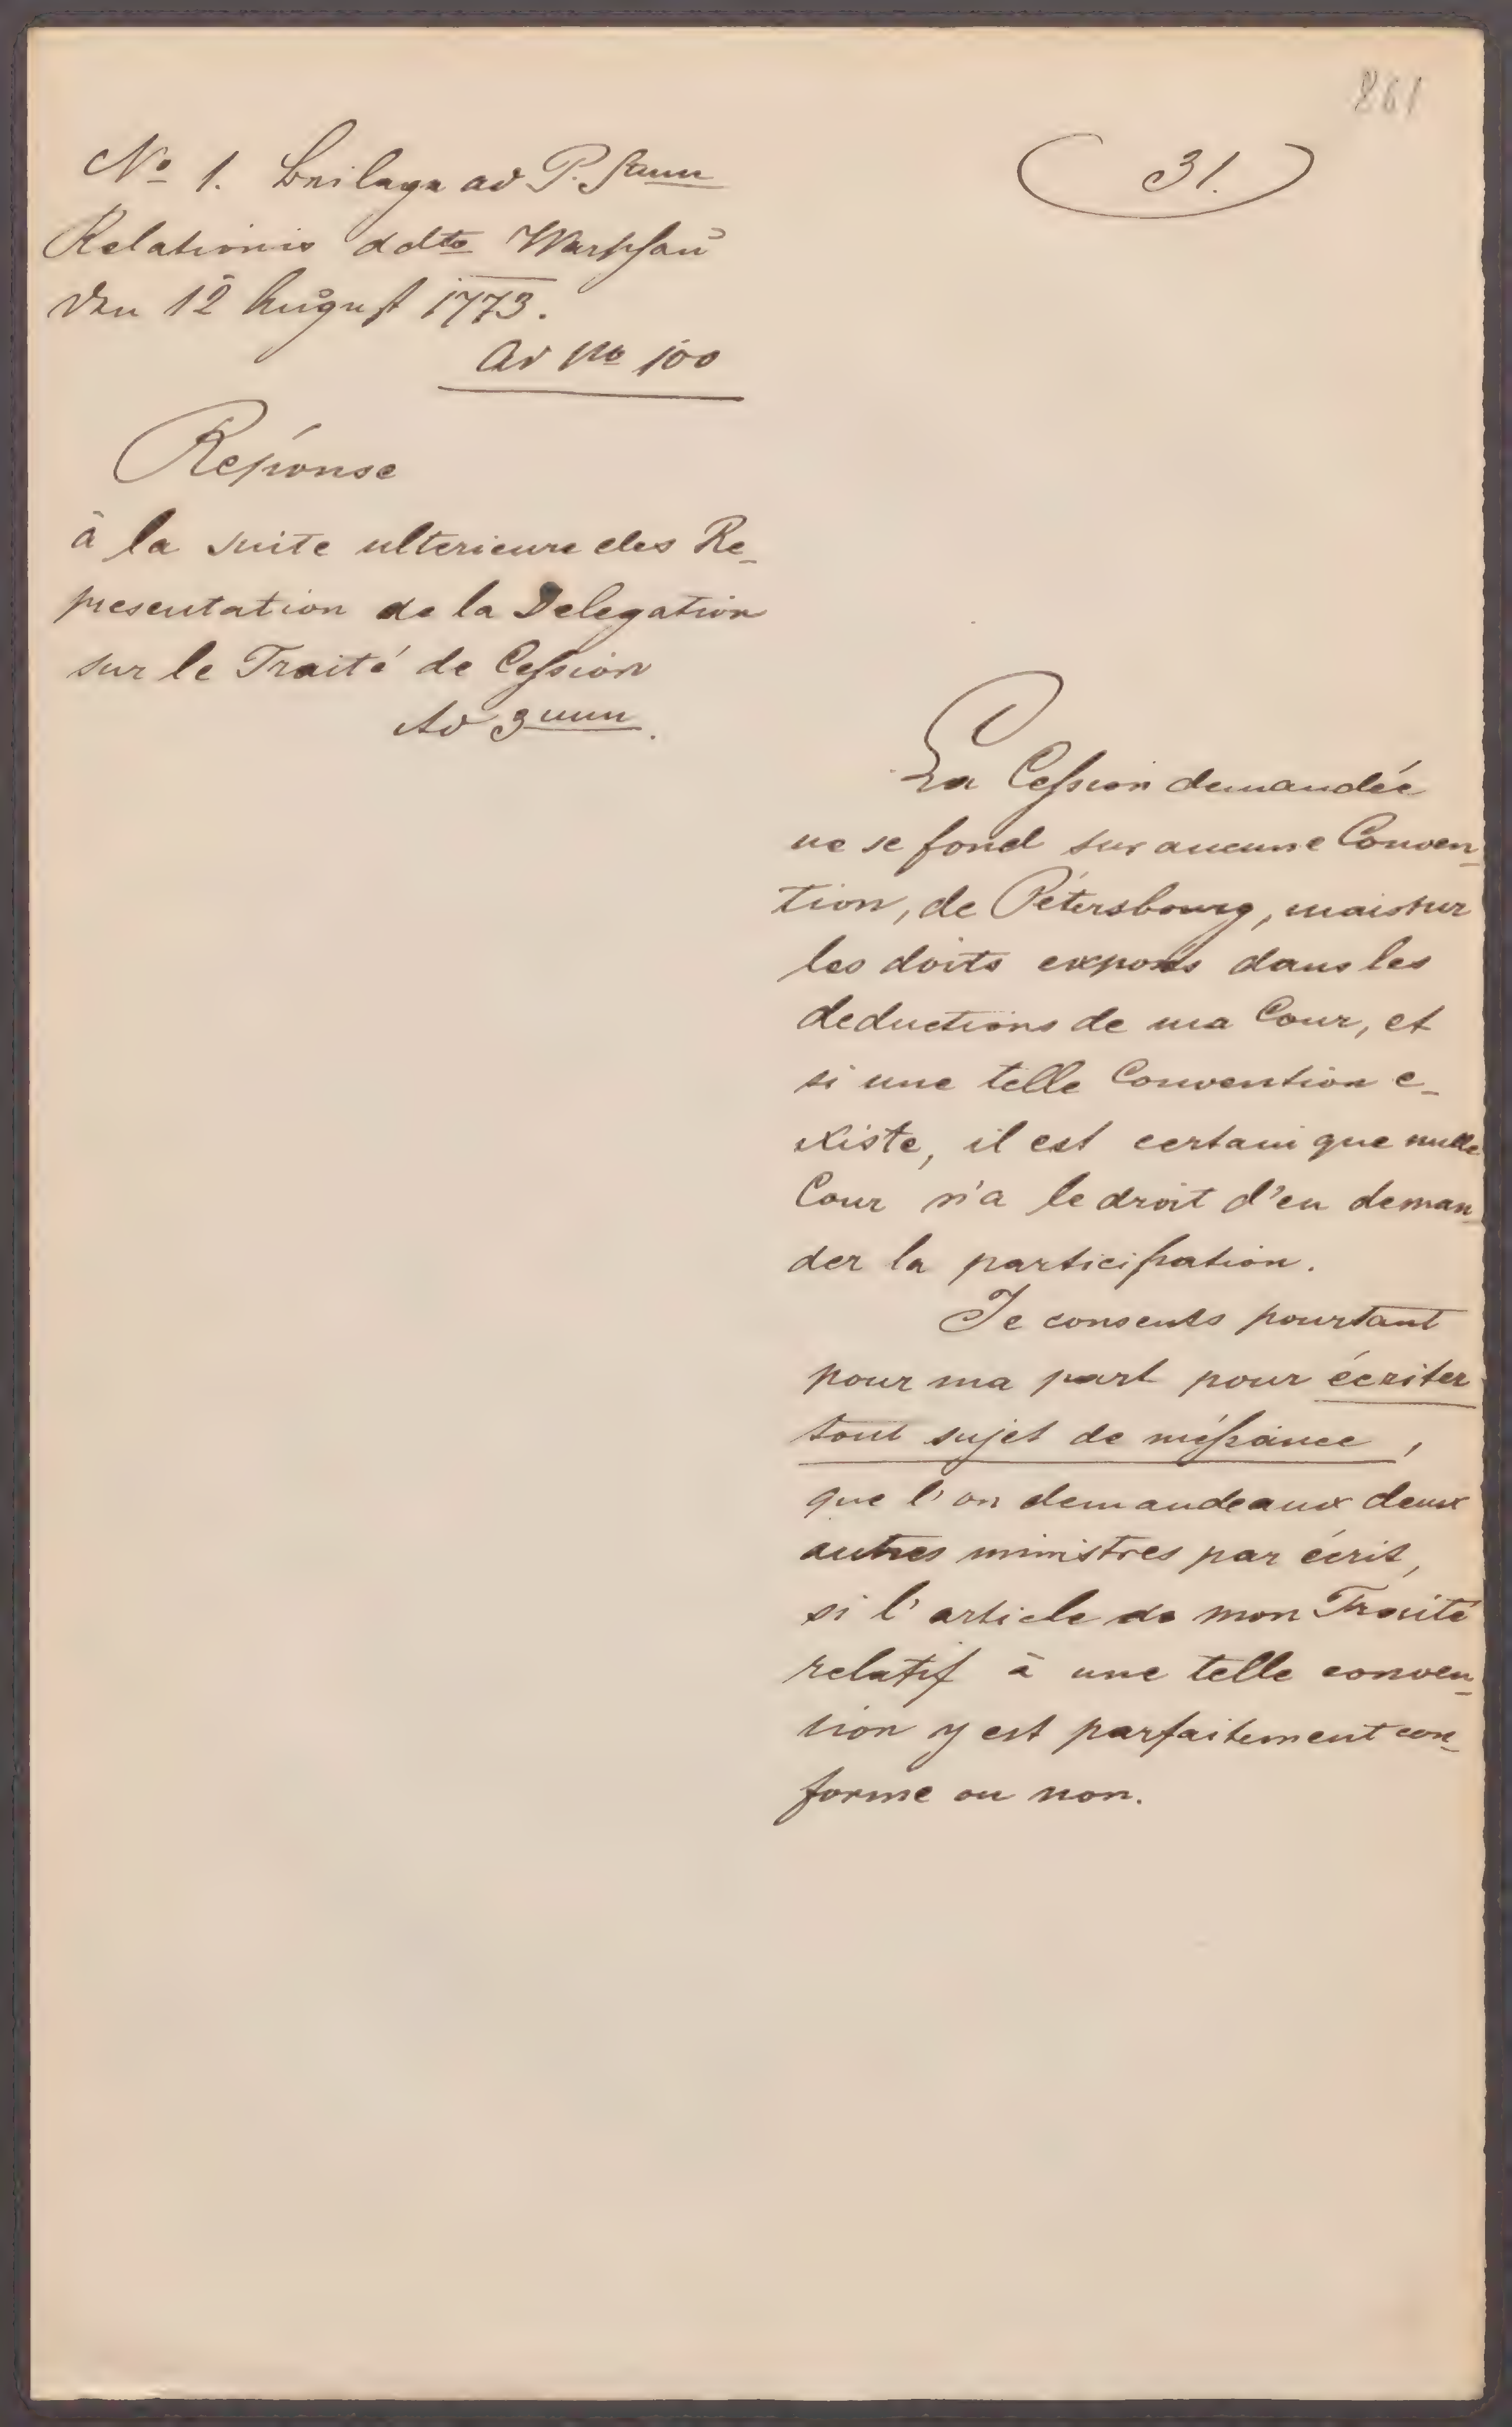 861
(31.)
No 1. Beilage ad P. Sum
Relationis ddto Warschau
den 12 August 1773.
Ad No 100
Réponse
à la suite ulterieure des Re-
presentation de la Delegation
sur le Traité de Cession
Ad 3um.
La Cession demandée
ne se fond sur aucune Conven-
tion, de Pétersbourg, mais sur
les doits exposés dans les
deductions de ma Cour, et
si une telle Convention e-
xiste, il est certain que nulle
Cour n'a le droit d'en deman-
der la participation.
Je consents pourtant
pour ma part pour écriter
tout sujet de
que l'on demande aux deux
autres ministres par écrit,
si l'article de mon Traité
relatif à une telle conven-
tion y est parfaitement con-
forme ou non.